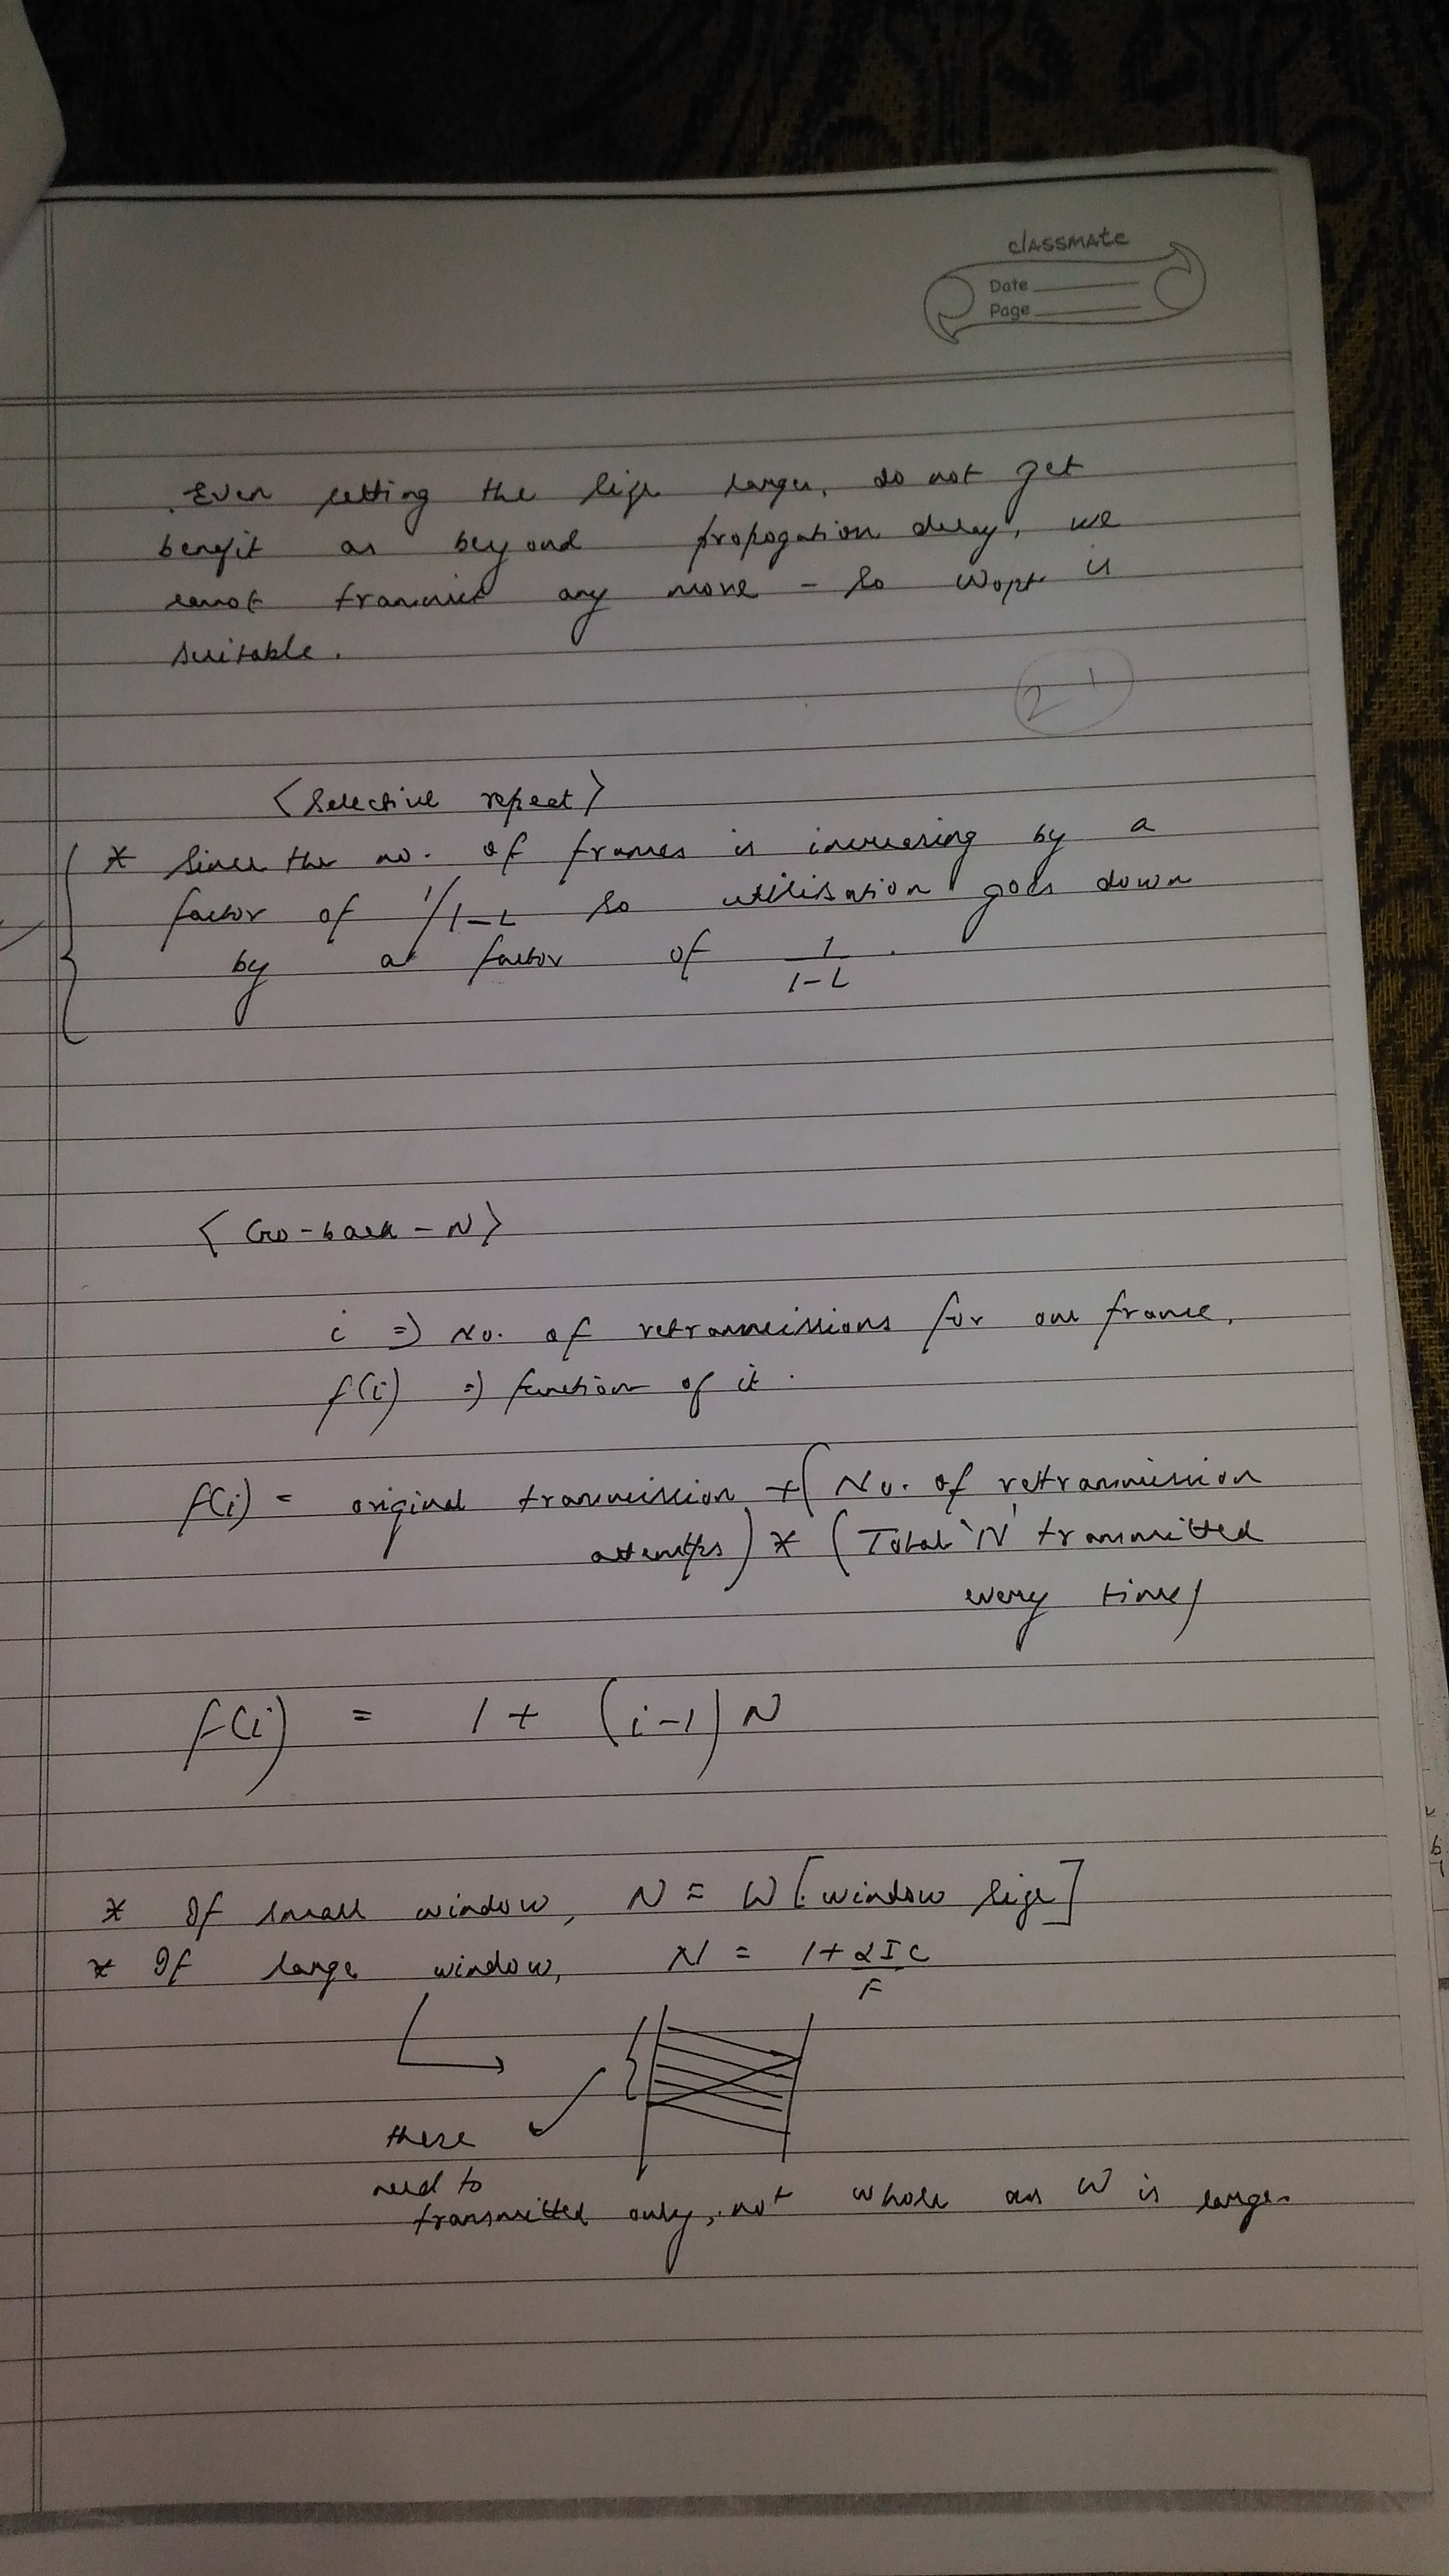 classmate
Date
Page
Even setting the size larger, do not get
benefit as beyond propogation delay, we
cannot transmit any more - so Wopt is
suitable.
21
<Selective repeat>
* Since the no. of frames is increasing by a
factor of 1/1-L so utilisation goes down
by a factor of 1/1-L.
<Go-back-N>
i => No. of retransmissions for one frame.
f(i) => function of it.
f(i) = original transmission + (No. of retransmission
attempts) * (Total 'N' transmitted
every time)
f(i) = 1 + (i-1) N
* If small window, N = W [window size]
* If large window, N = 1+ 2IC/F
these
need to
transmitted only, not whole as W is large.